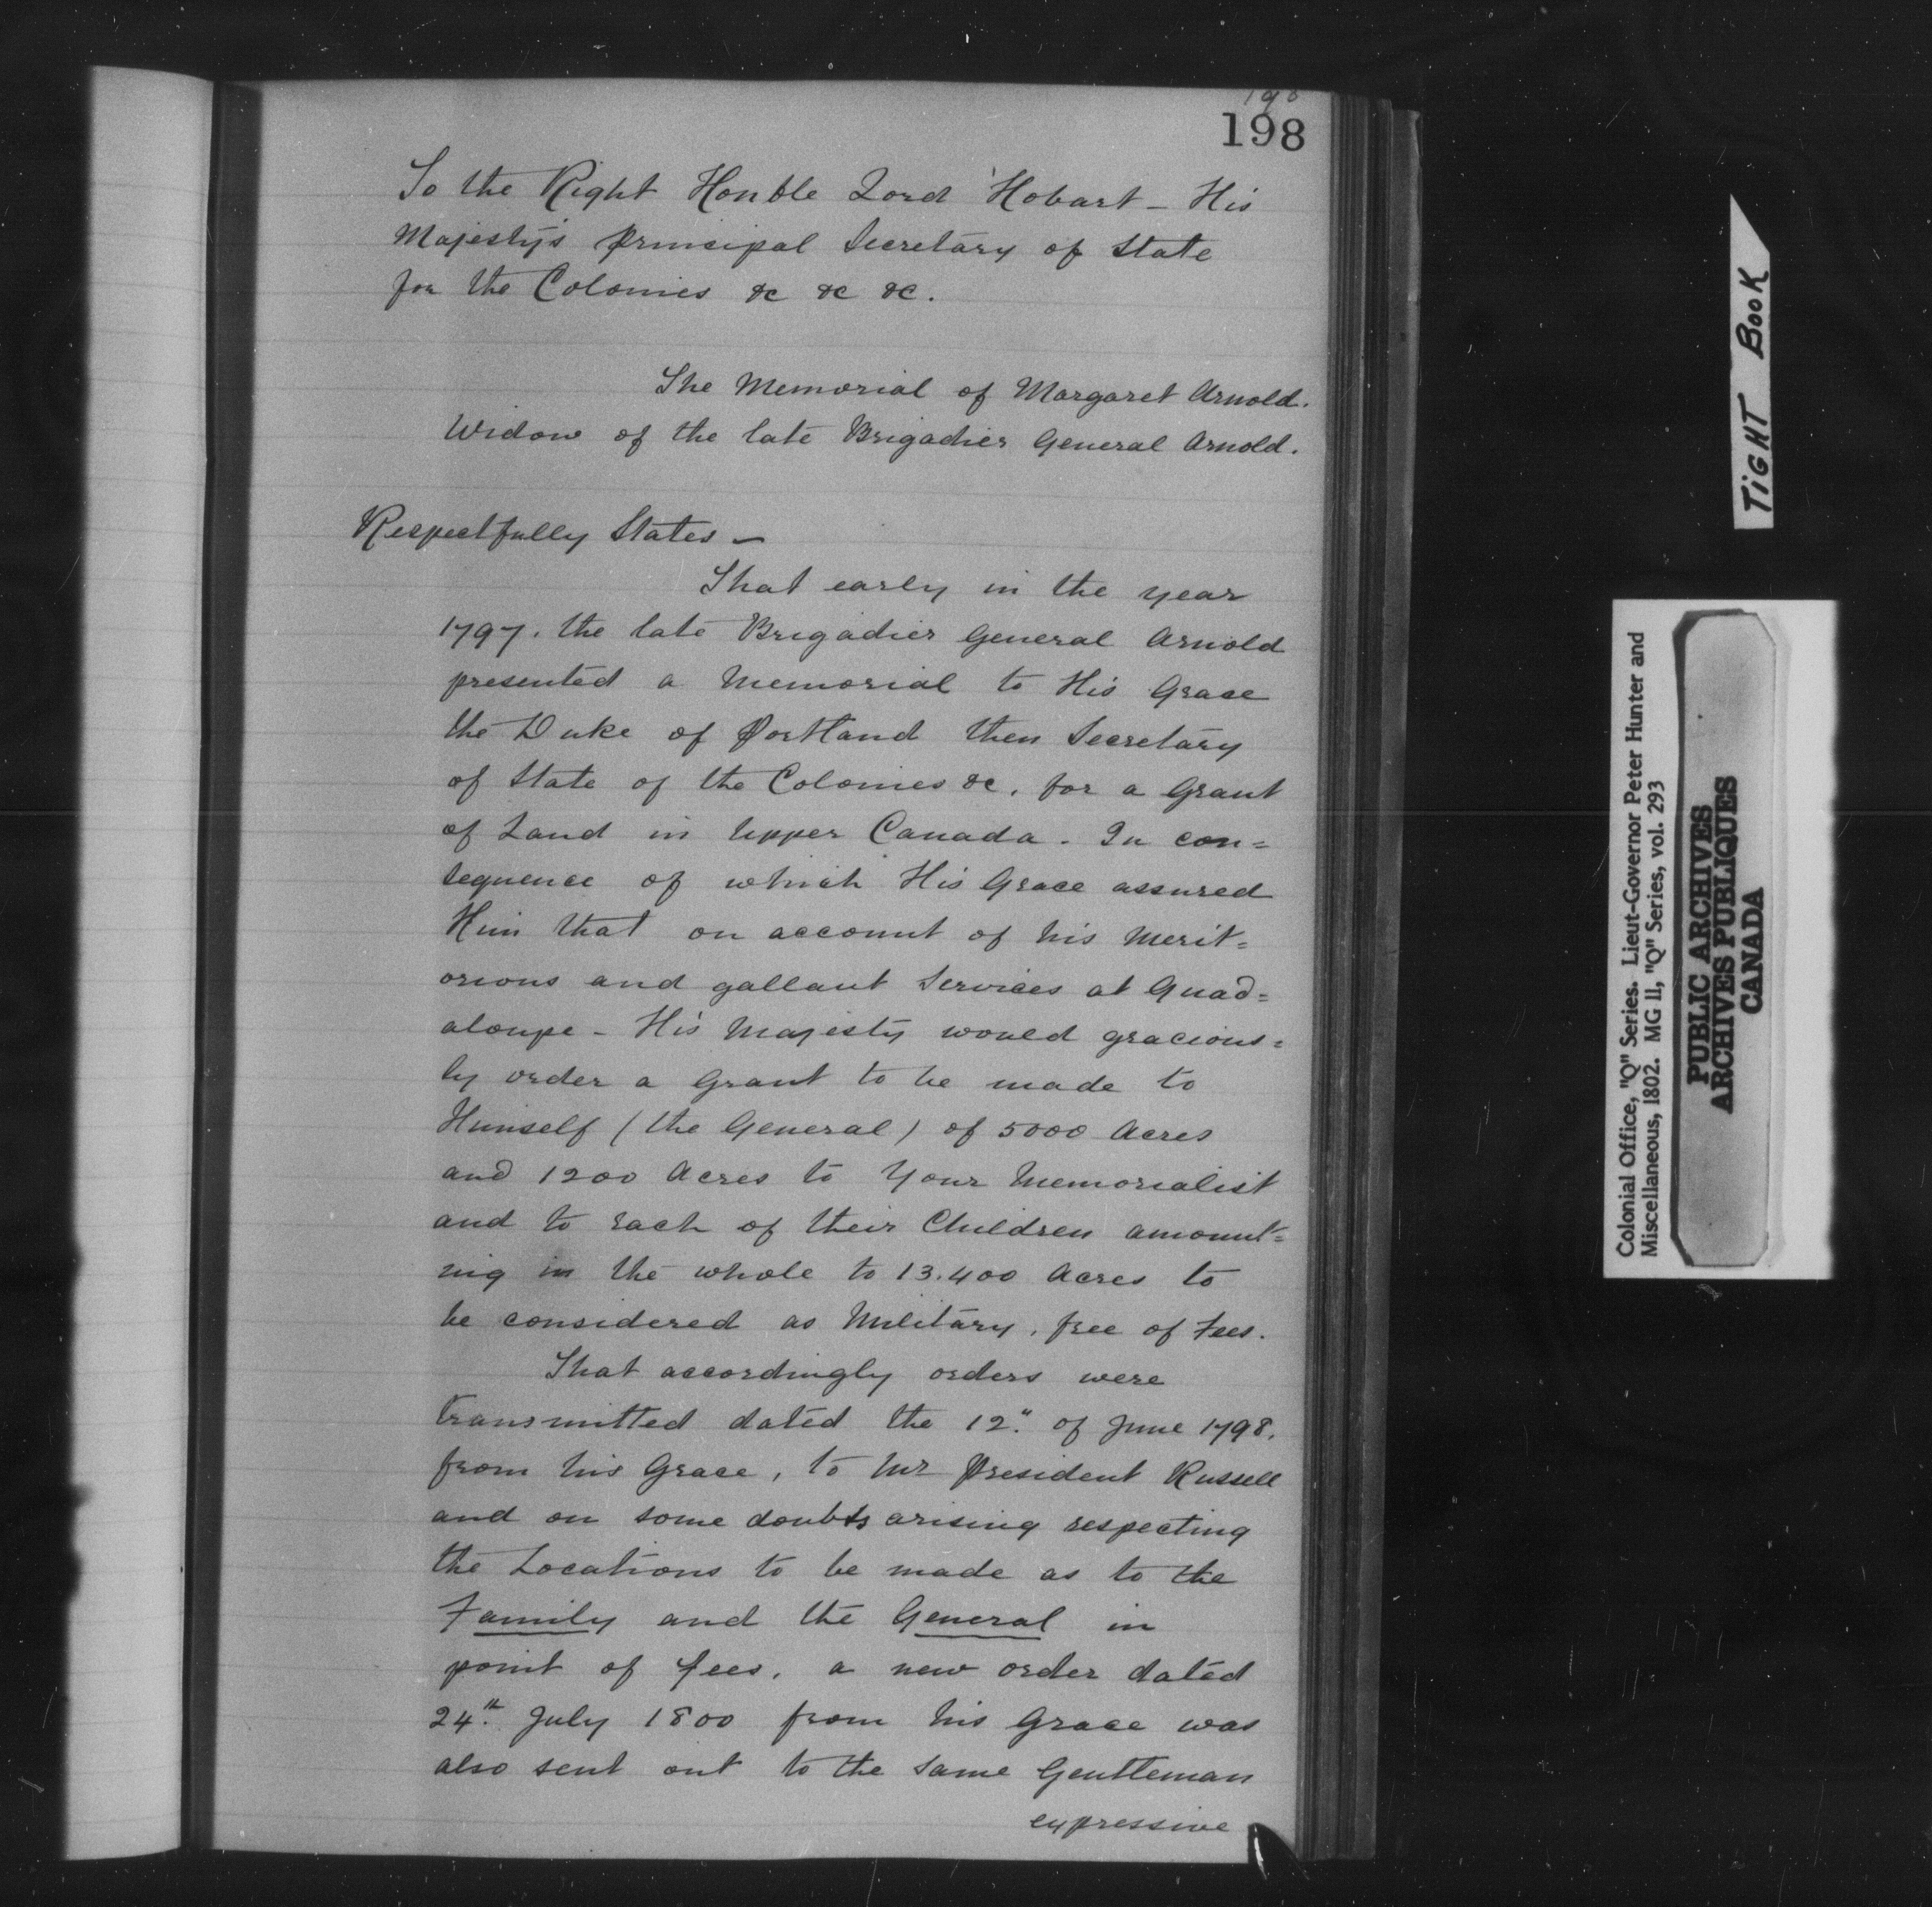 198
To the Right Honble Lord Hobart - His
Majesty's Principal Secretary of State
for the Colonies &c &c &c.
The Memorial of Margaret Arnold.
Widow of the late Brigadier General Arnold.
Respectfully States -
That early in the year
1797. the late Brigadier General Arnold
presented a Memorial to His Grace
the Duke of Portland then Secretary
of State of the Colonies &c, for a Grant
of Land in Upper Canada. In con=
sequence of which His Grace assured
Him that on account of his Merit=
orious and gallant Services at Guad=
aloupe - His Majesty would gracious=
ly order a Grant to be made to
Himself (the General) of 5000 Acres
and 1200 Acres to Your Memorialist
and to each of their Children amount=
ing in the whole to 13.400 Acres to
be considered as Military, free of Fees.
That accordingly orders were
transmitted dated the 12" of June 1798.
from his Grace, to Mr President Russell
and on some doubts arising respecting
the Locations to be made as to the
Family and the General in
point of fees, a new order dated
24th July 1800 from his Grace was
also sent out to the same Gentleman
expressive
TIGHT BOOK
Colonial Office, "Q" Series. Lieut-Governor Peter Hunter and
Miscellaneous, 1802. MG 11, "Q" Series, vol. 293
PUBLIC ARCHIVES
ARCHIVES PUBLIQUES
CANADA